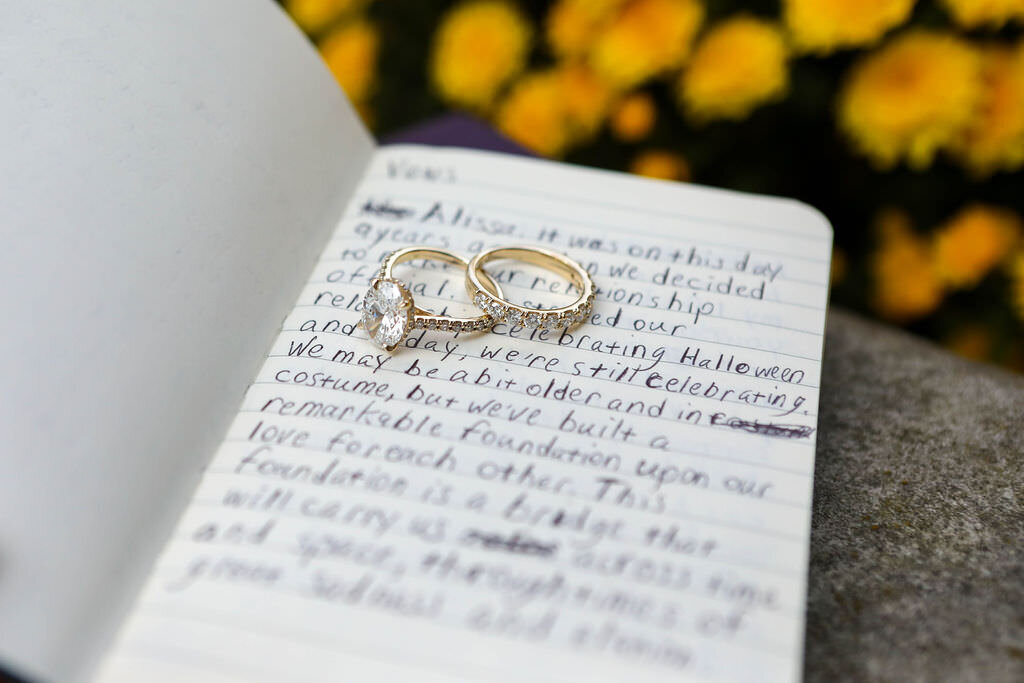 Vows
Alissa. It was on this day
years we decided
to our relationship
official. our
celebrating Halloween
and day, we're still celebrating.
We may be a bit older and in
costume, but we've built a
remarkable foundation upon our
love for each other. This
foundation is a bridge that
will carry us across time
and space, through times of
great sadness and